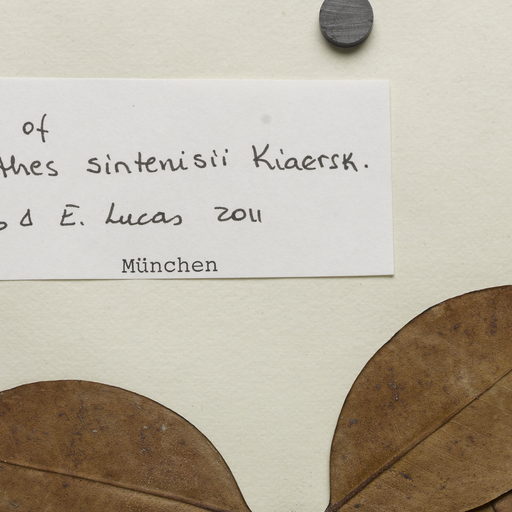 of
thes sintenisii Kiaersk.
& E. Lucas 2011
München